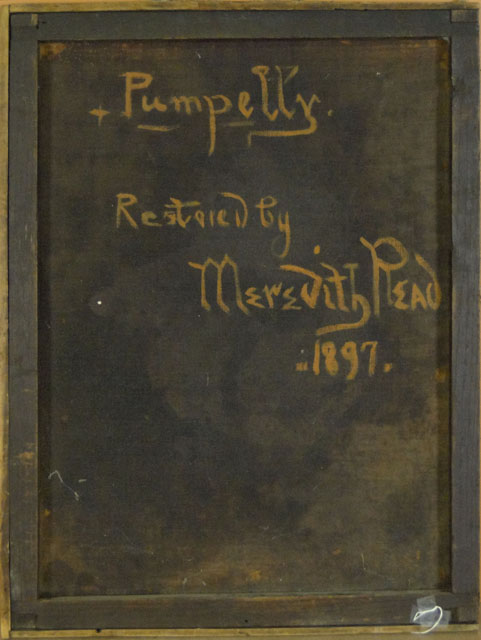 + Pumpelly.
Restored by
Meredith Read
1897.